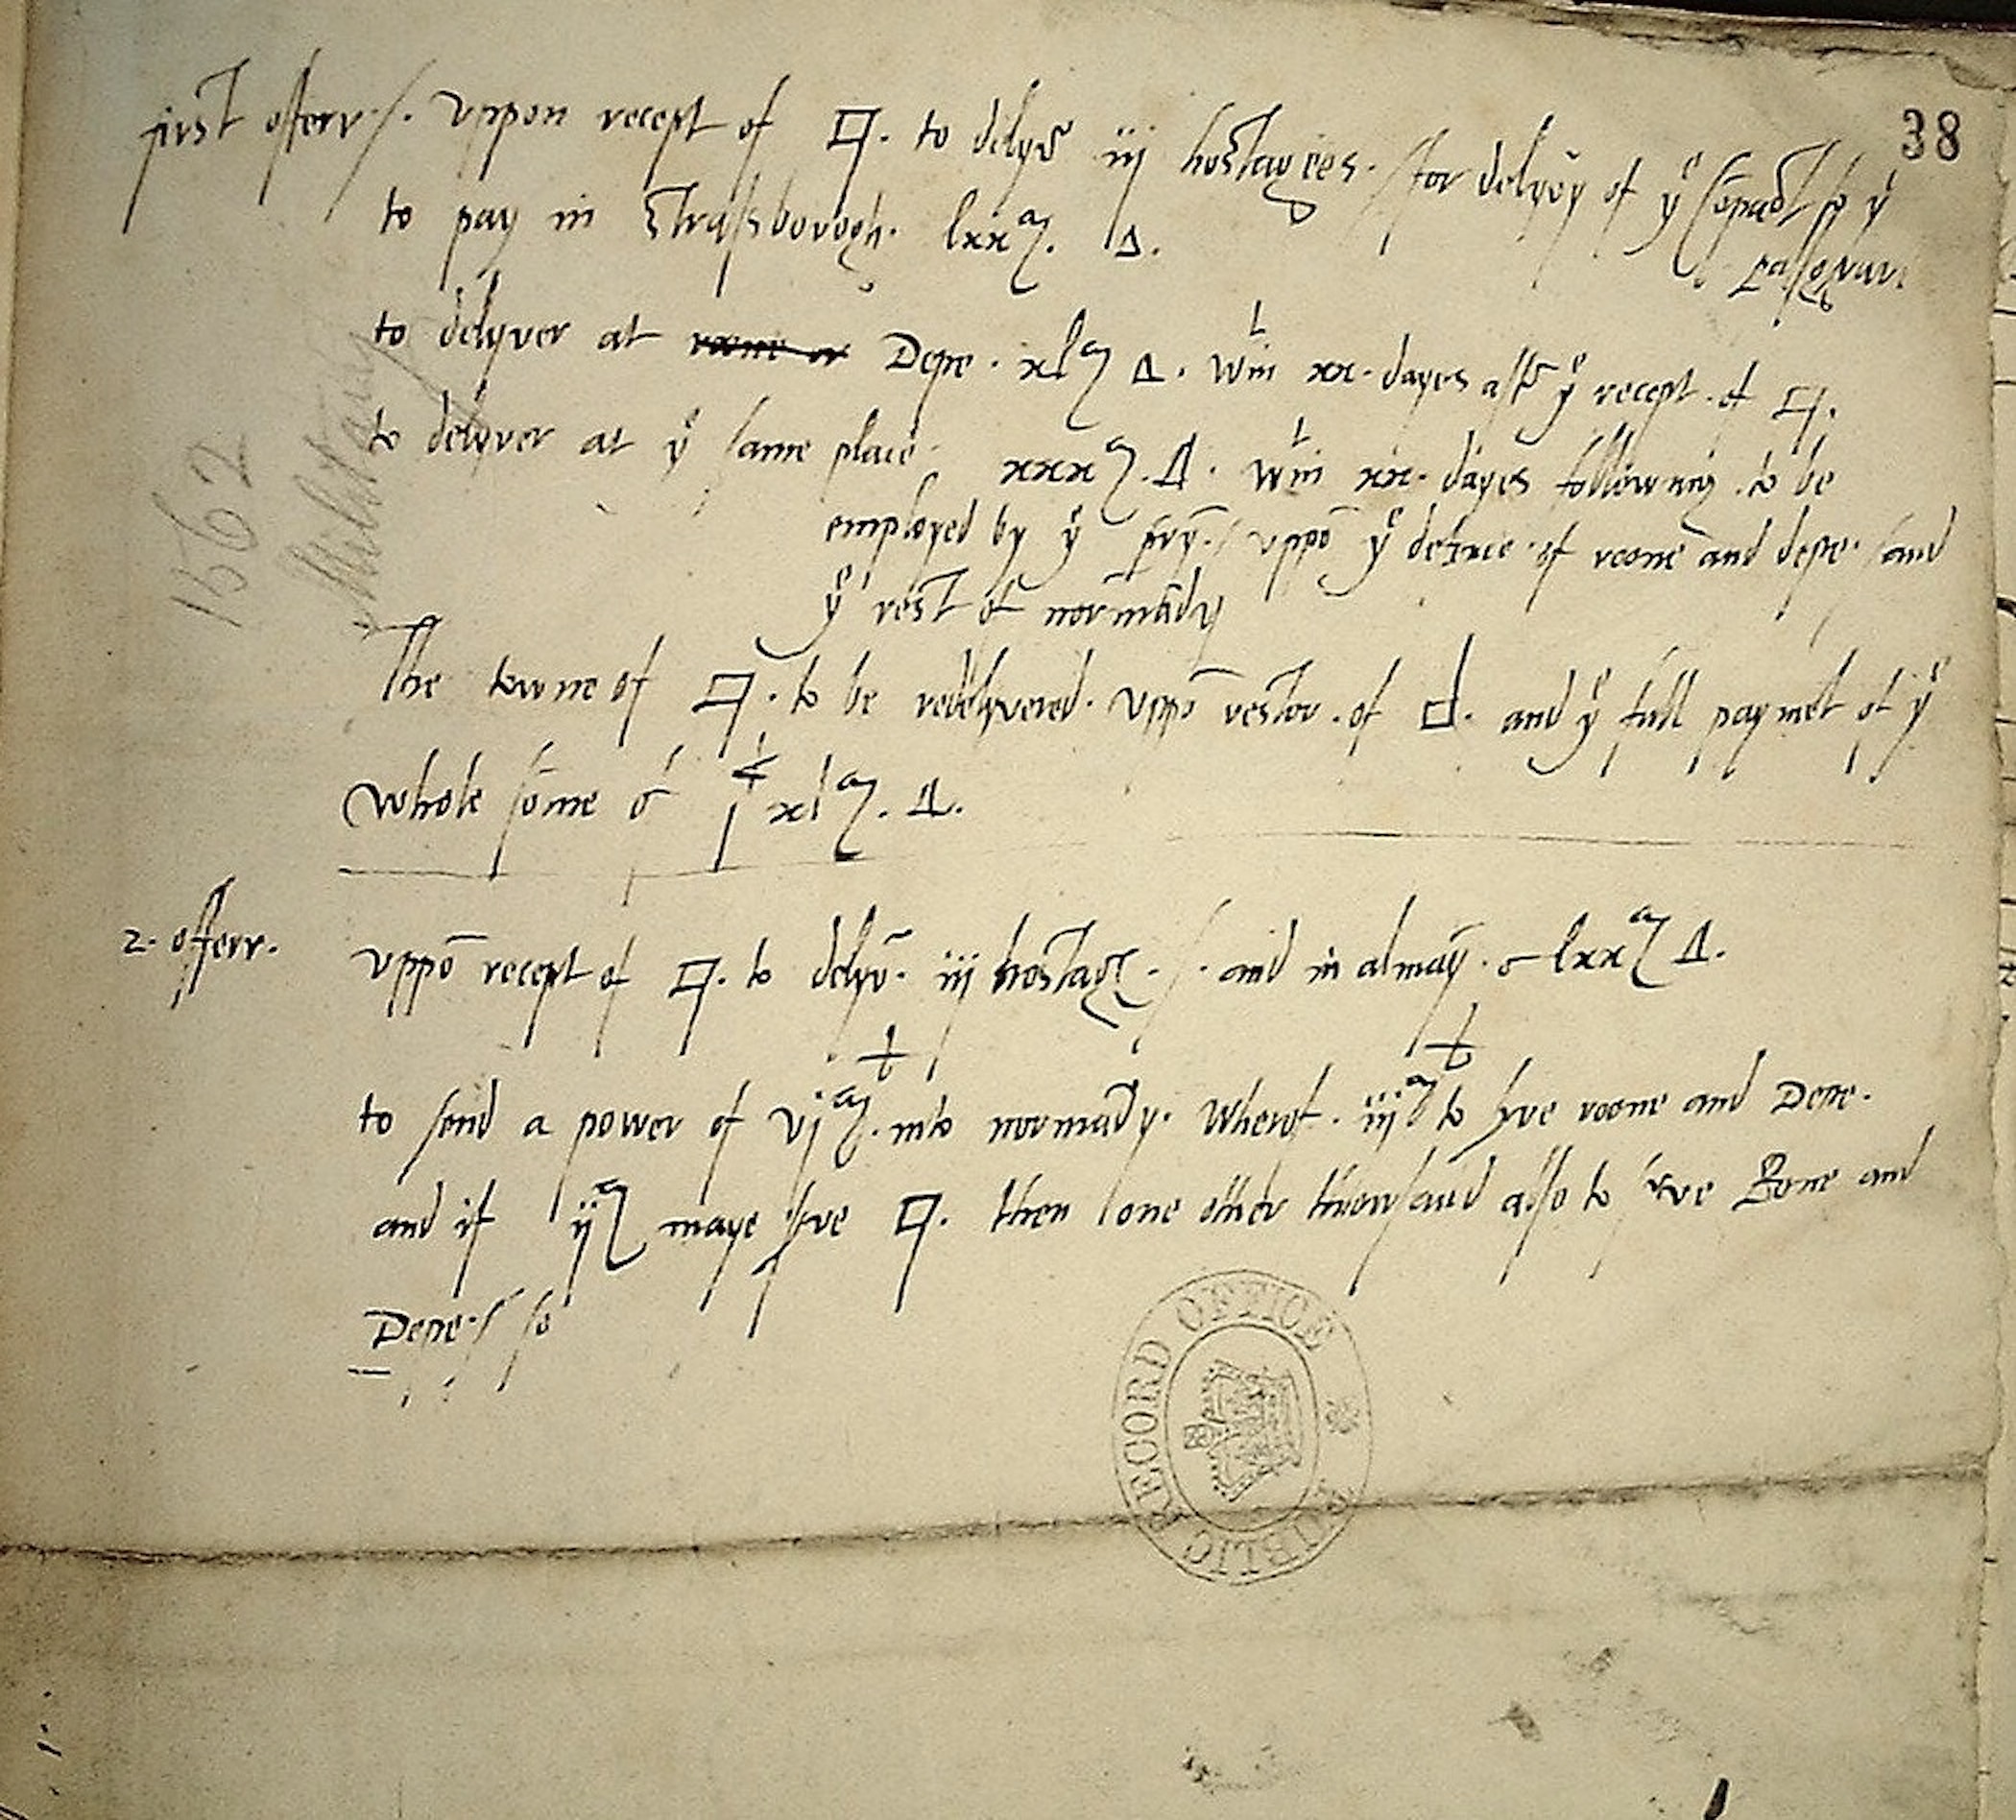 38
first offerr. Uppon recept of to delyv iij hostagees. for delyvy of yᵉ
to pay in Strassborogh. lxxᵐ
to delyver at roone or Depe. xlᵐ wᵗin xx. dayes aft yᵉ recept. of
to delyver at yᵉ same place xxxᵐ. wᵗin xx. dayes following. to be
employed by yᵉ uppō yᵉ defence of roone and depe. and
yᵉ rest of normādy
The towne of to be redelyvered. Uppō restor. of and yᵉ full paymēt of yᵉ
whole sōme of xlᵐ.
2. offerr. Uppō recept of to delyv. iij hostag. and in almay. lxxᵐ
to send a power of vjᵐ. into normādy. wherof. iiijᵐ to sve roone and Depe.
and if ijᵐ maye sve then one other thowsand also to sve Rone and
Depe. so
1562
PUBLIC RECORD OFFICE